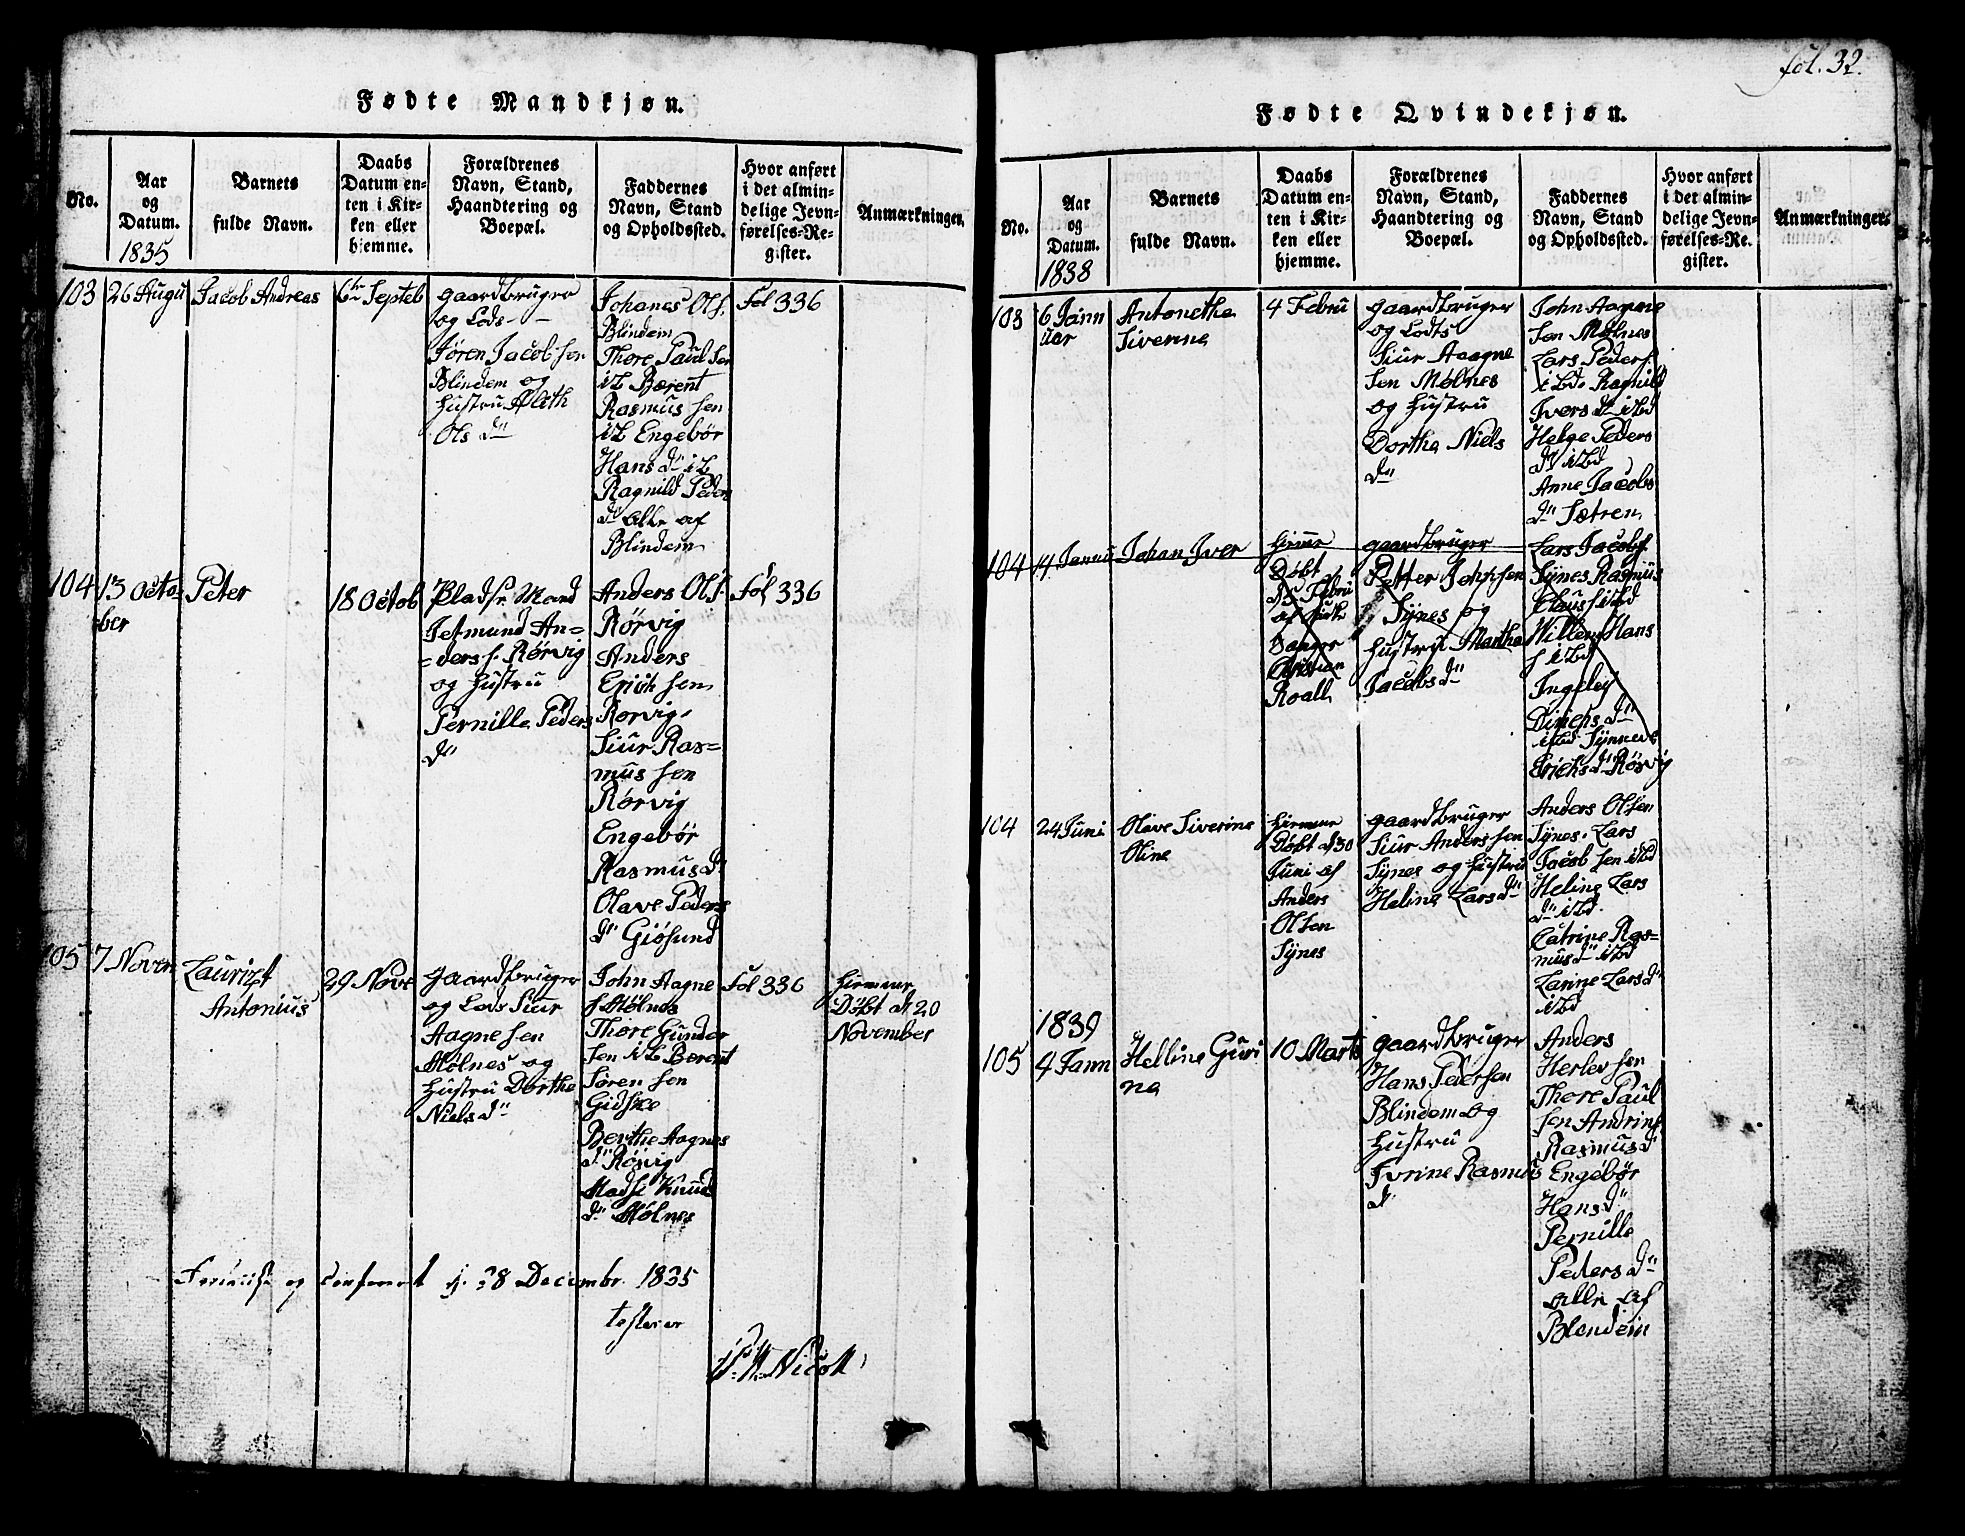 fol. 32.
Fødte Mandkjøn.
No.
Aar
og
Datum.
1835
Barnets
fulde Navn.
Daabs
Datum en-
ten i Kir-
ken eller
hjemme.
Forældrenes
Navn, Stand,
Haandtering og
Boepæl.
Faddernes
Navn, Stand
og Opholdssted.
Hvor anført
i det almin-
delige Jevn-
førelses-Re-
gister.
Anmærkninger.
103
26 Augu
Jacob Andreas
6te Septeb
gaardbruger
og Lods
Søren Jacobsen
Blindem og
Hustru Aleth
Ols dr
Johanes Ols.
Blindem
Thore Paulsen
ib Bærent
Rasmus sen
ib Engebør
Hans dr ib
Ragnild Peders
dr alle af
Blindem
Fol 336
104
13 Octo-
ber
Peter
18 Octob
Pladsr. Mand
Jetmund An-
ders s. Rørvig
og Hustru
Pernille Peders
dr
Anders Ols.
Rørvig
Anders
Erich sen
Rørvig
Siur Ras-
mus sen
Rørvig
Engebør
Rasmus dr
Olave Peders
dr Giøsund
Fol 336
105
7 Novem
Laurizt
Antonius
29 Nove
gaardbruger
og Lods Siur
Aagne sen
Mølnes og
Hustru Dorthe
Niels dr
John Aagne
s Mølnes
Thore Gunder
sen ib Berent
Søren sen
Gidske
Berthe Aagnes
dr Rørvig
Madsi Knuds
dr Mølnes
Fol 336
hiemme
Døbt d 20
November
og Conferert d. 28 Decembr. 1835
Nicoll
Fødte Qvindekjøn.
No.
Aar
og
Datum.
1838
Barnets
fulde Navn.
Daabs
Datum en-
ten i Kir-
ken eller
hjemme.
Forældrenes
Navn, Stand,
Haandtering og
Boepæl.
Faddernes
Navn, Stand
og Opholdssted.
Hvor anført
i det almin-
delige Jevn-
førelses-Re-
gister.
Anmærkninger.
103
6 Jann
uar
Antonetha
Siverina
4 Febru
gaardbruger
og Lodts
Siur Aagne
sen Mølnes
og Hustru
Dorthe Niels
dr
John Aagne
sen Mølnes
Lars Peders.
ibd Ragnild
Ivers dr ibd
Helge Peders
dr ibd
Anne Jacobs
dr Sætren
104
14 Januu
Johan Iver
hieme
Døbt
d 5 Febru
af
Christian
Roall
gaardbruger
Petter
Synes og
Hustru Marthe
Jacobs dr
Lars Jacobs.
Synes Rasmus
Claus s ibd
Willem Hans
s ibd
Ingeley
dr
ibd Synneve
Erichs dr Rørvig
104
24 Juni
Olave Siverine
Oline
hiemme
Døbt d 30
Juni af
Anders
Olsen
Synes
gaardbruger
Siur Anderssen
Synes og Hustru
Heline Lars dr
Anders Olsen
Synes. Lars
Jacob sen ibd
Heline Lars
dr ibd.
Catrine Ras-
mus dr ibd
Larine Lars dr
ibd
1839
105
4 Jann
Helline Guri
na
10 Marts
gaardbruger
Hans Pedersen
Blindem og
Hustru
Ivrine Rasmus
dr
Anders
Herlev sen
Thore Paul
sen Andrine
Rasmus d
Engebør
Hans dr
Pernille
Peders dr
alle af
Blendem